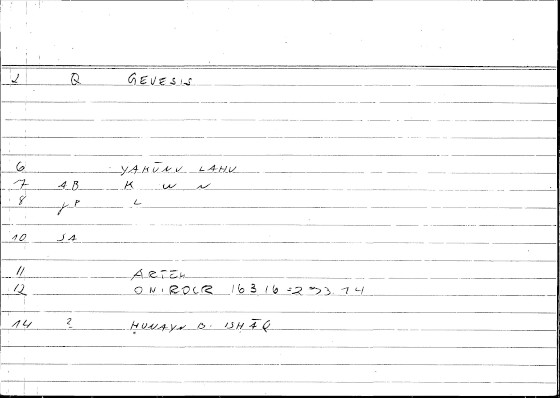 1 Q GENESIS
6 YAKŪNU LAHU
7 AB K W N
8 JP L
10 SA
11 ARTEM
12 ONIROCR 163 16 = 273.14
14 ? ḤUNAYN B. ISḤĀQ